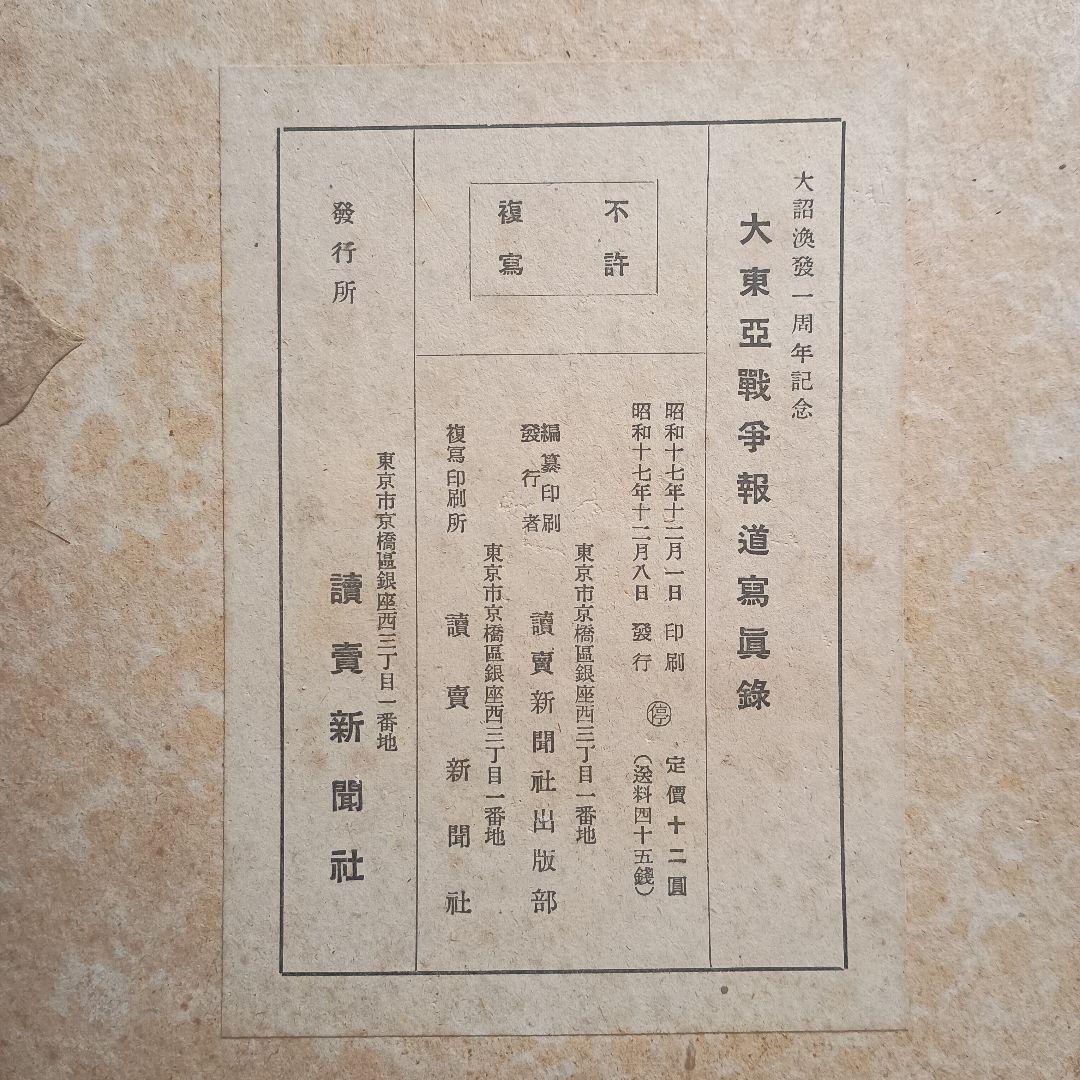 大詔渙發一周年記念
大東亞戰爭報道寫眞錄
不許
複寫
昭和十七年十二月一日 印刷 定價十二圓
昭和十七年十二月八日 發行 ㊡ (送料四十五錢)
東京市京橋區銀座西三丁目一番地
編纂印刷
發行者 讀賣新聞社出版部
東京市京橋區銀座西三丁目一番地
複寫印刷所 讀賣新聞社
東京市京橋區銀座西三丁目一番地
發行所 讀賣新聞社